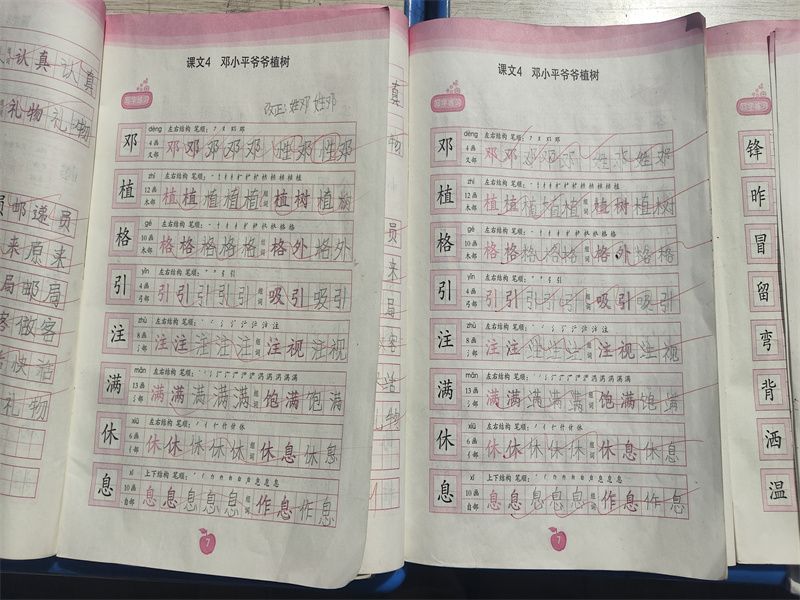 认真认真
礼物礼物
员邮递员
来原来
局邮局
客做客
快洁
礼物
课文4 邓小平爷爷植树
改正:姓邓 姓邓
dèng 左右结构 笔顺:
邓 4画 邓邓邓邓邓 姓邓姓邓
又部
zhí 左右结构 笔顺:
植 12画 植植植植植 组词 植树植树
木部
gé 左右结构 笔顺:
格 10画 格格格格格 组词 格外格外
木部
yǐn 左右结构 笔顺:
引 4画 引引引引引 组词 吸引吸引
弓部
zhù 左右结构 笔顺:
注 8画 注注注注注 组词 注视注视
氵部
mǎn 左右结构 笔顺:
满 13画 满满满满满 组词 饱满饱满
氵部
xiū 左右结构 笔顺:
休 6画 休休休休休 组词 休息休息
亻部
xī 上下结构 笔顺:
息 10画 息息息息息 组词 作息作息
自部
7
真
物
员
来
局
客
物
课文4 邓小平爷爷植树
dèng 左右结构 笔顺:
邓 4画 邓邓邓邓邓 姓邓姓邓
又部
zhí 左右结构 笔顺:
植 12画 植植植植植 组词 植树植树
木部
gé 左右结构 笔顺:
格 10画 格格格格格 组词 格外格
木部
yǐn 左右结构 笔顺:
引 4画 引引引引引 组词 吸引吸引
弓部
zhù 左右结构 笔顺:
注 8画 注注注注注 组词 注视注视
氵部
mǎn 左右结构 笔顺:
满 13画 满满满满满 组词 饱满饱满
氵部
xiū 左右结构 笔顺:
休 6画 休休休休休 组词 休息休息
亻部
xī 上下结构 笔顺:
息 10画 息息息息息 组词 作息作息
自部
7
锋
昨
冒
留
弯
背
洒
温